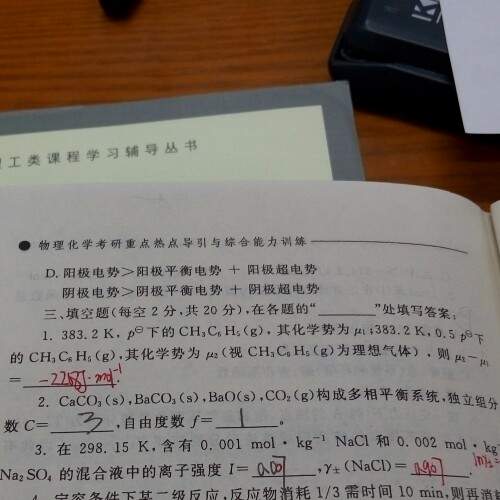 工类课程学习辅导丛书
● 物理化学考研重点热点导引与综合能力训练
D. 阳极电势>阳极平衡电势 + 阳极超电势
阴极电势>阴极平衡电势 + 阴极超电势
三、填空题(每空 2 分,共 20 分),在各题的“______”处填写答案:
1. 383.2 K, p⊖下的 CH₃C₆H₅(g), 其化学势为 μ₁;383.2 K,0.5 p⊖下
的 CH₃C₆H₅(g),其化学势为 μ₂(视 CH₃C₆H₅(g)为理想气体), 则 μ₂−μ₁
= -2208J·mol⁻¹
2. CaCO₃(s),BaCO₃(s),BaO(s),CO₂(g)构成多相平衡系统,独立组分
数 C= 3 ,自由度数 f= 1 .
3. 在 298.15 K,含有 0.001 mol·kg⁻¹ NaCl 和 0.002 mol·kg⁻
Na₂SO₄ 的混合液中的离子强度 I= 0.007 ,γ±(NaCl)= 0.907 .
4. 定容条件下某二级反应,反应物消耗 1/3 需时间 10 min,则再消耗